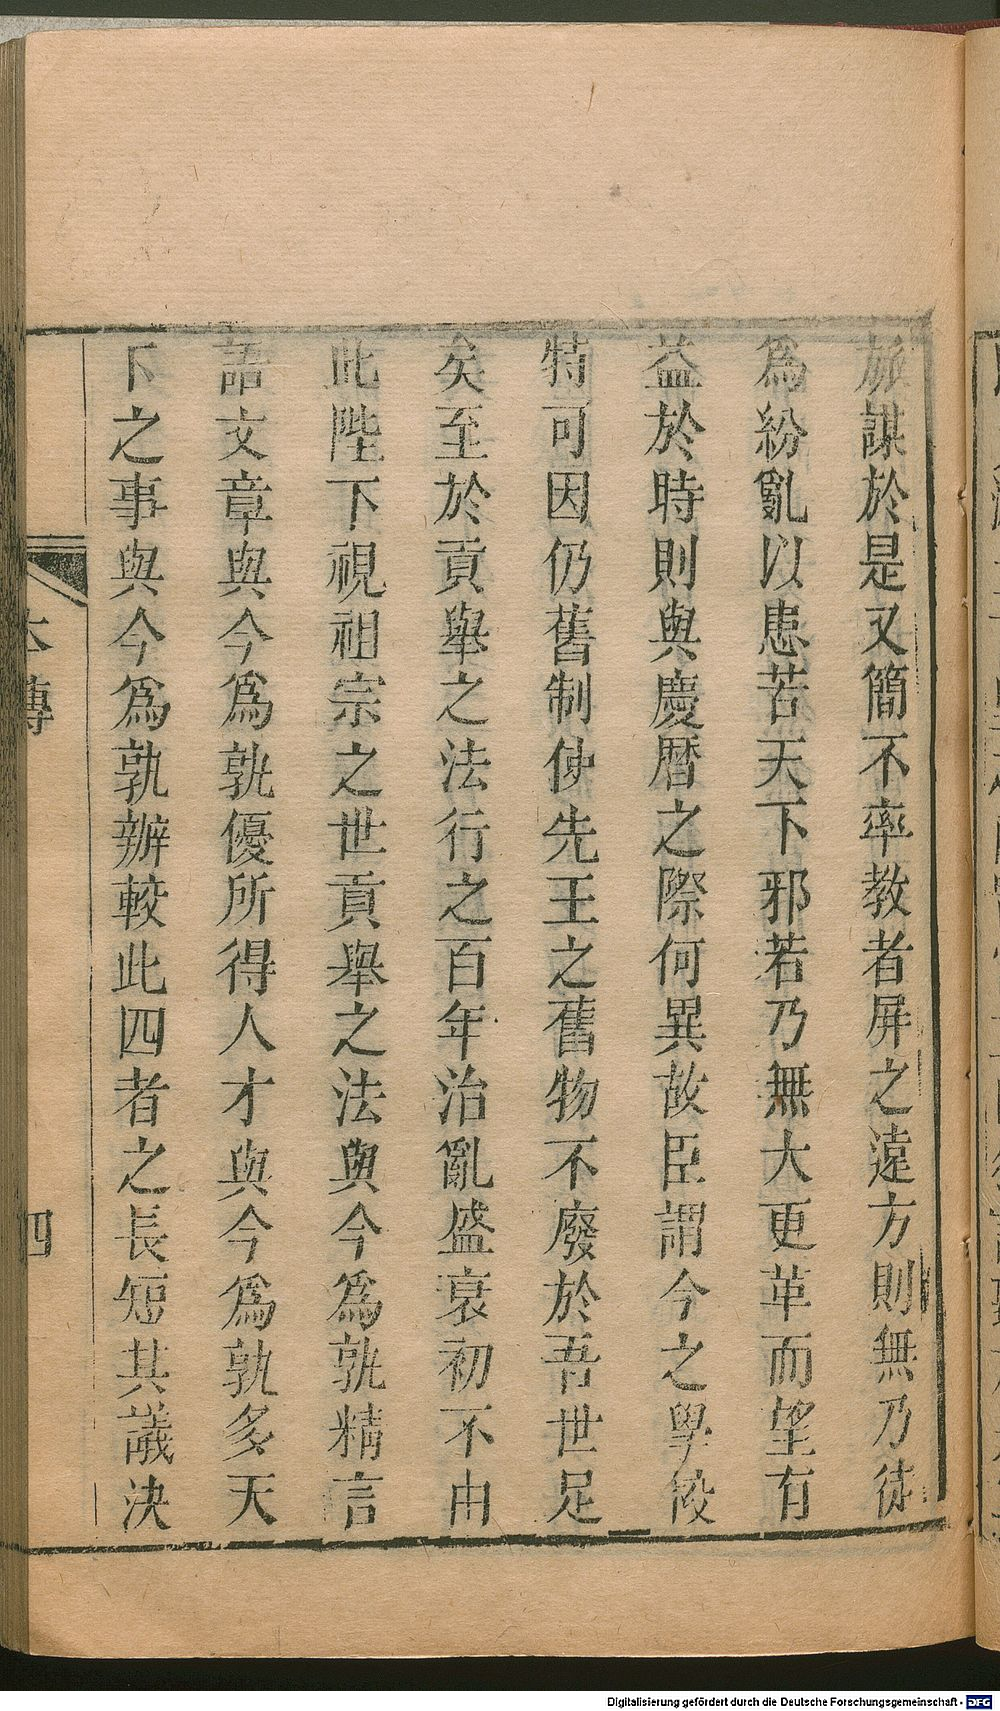 旅謀於是又簡不率教者屏之遠方則無乃徒
為紛亂以患苦天下邪若乃無大更革而望有
益於時則與慶曆之際何異故臣謂今之學校
特可因仍舊制使先王之舊物不廢於吾世足
矣至於貢舉之法行之百年治亂盛衰初不由
此陛下視祖宗之世貢舉之法與今為孰精言
語文章與今為孰優所得人才與今為孰多天
下之事與今為孰辦較此四者之長短其議決
本傳
四
Digitalisierung gefördert durch die Deutsche Forschungsgemeinschaft - DFG